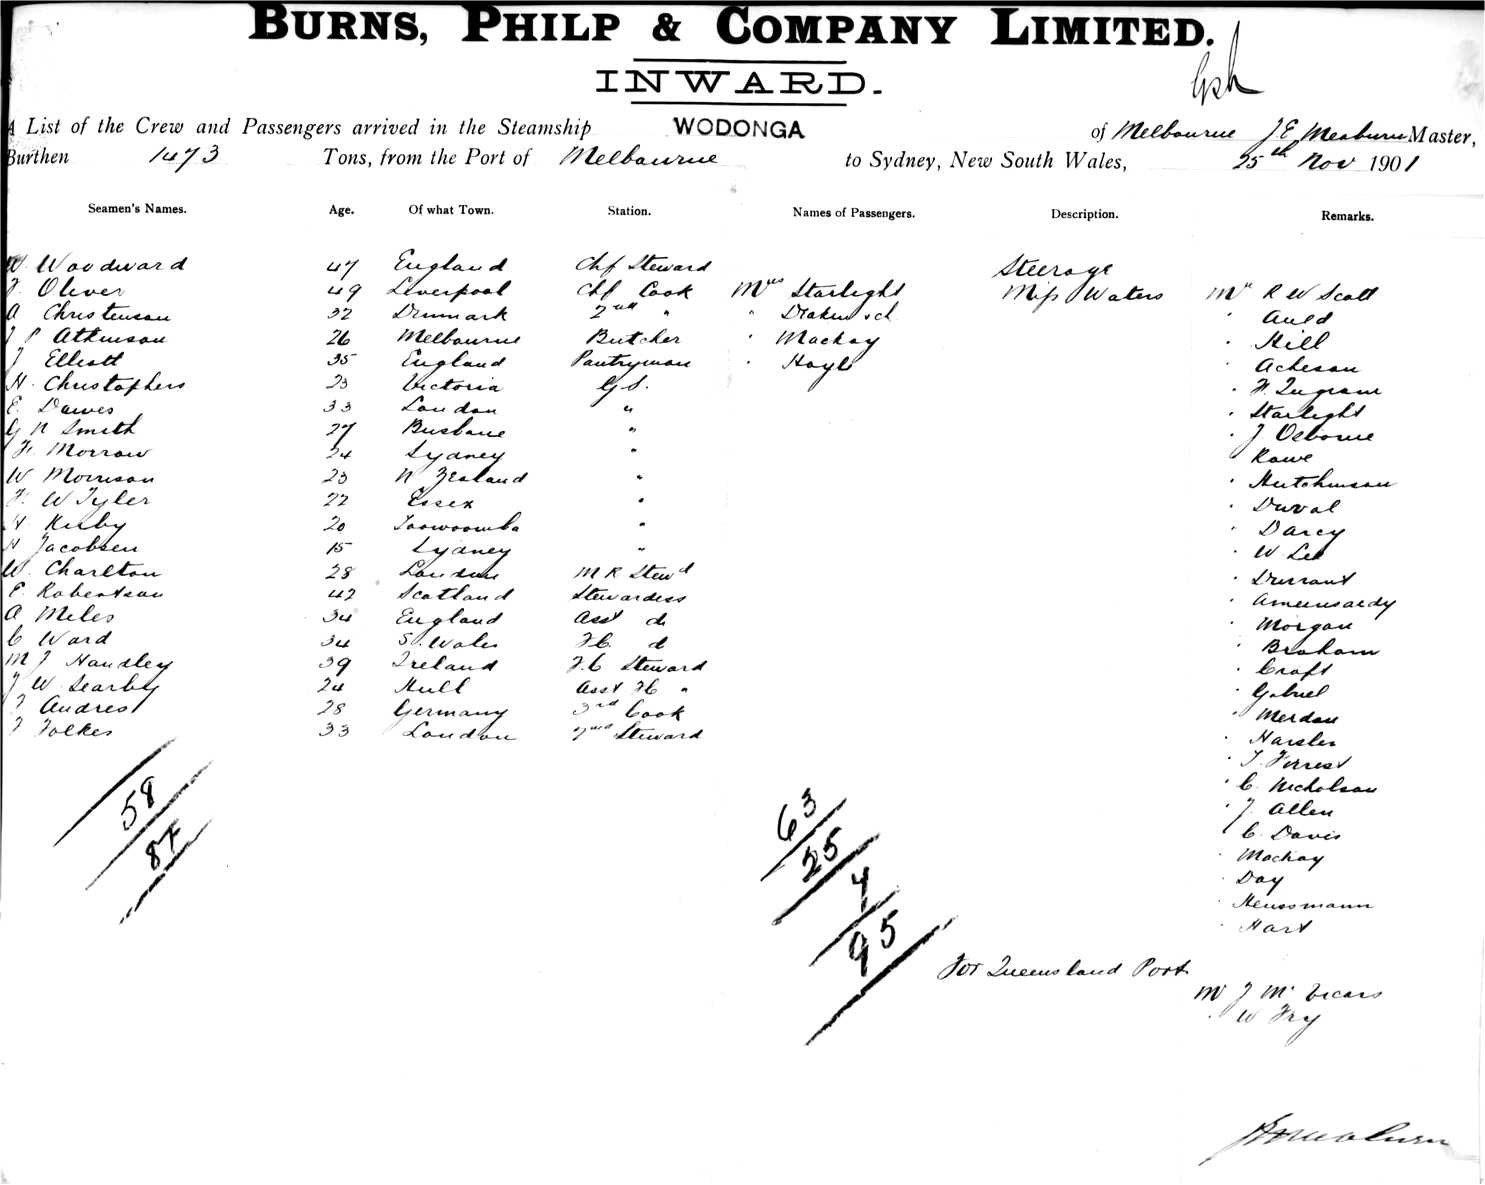 BURNS, PHILP & COMPANY LIMITED.
INWARD.
A List of the Crew and Passengers arrived in the Steamship WODONGA of Melbourne J E Meaburn Master,
Burthen 1473 Tons, from the Port of Melbourne to Sydney, New South Wales, 25th Nov 1901
Seamen's Names. Age. Of what Town. Station. Names of Passengers. Description. Remarks.
W. Woodward 47 England Chf Steward Steerage
F. Oliver 49 Liverpool Chf Cook Mrs Starlight Miss Waters Mr R W Scott
A Christensen 32 Denmark 2nd " " " Auld
J P Atkinson 26 Melbourne Butcher " Mackay " Hill
J Elliott 35 England Pantryman " Hoyle " Acheson
H. Christophers 23 Victoria G.S. " H. Ingram
E. Dawes 33 London " " Starlight
G N Smith 27 Brisbane " " J Osborne
F. Morrow 24 Sydney " " Rowe
W Morrison 23 N Zealand " " Hutchinson
F. W Tyler 22 Essex " " Duval
H Kirby 20 Toowoomba " " Darcy
H Jacobsen 15 Sydney " " W Lee
W. Charlton 28 London M R Stewd " Durrant
E. Robertson 42 Scotland Stewardess "
A Miles 34 England Asst do " Morgan
C Ward 34 S. Wales F.C. do " Braham
M J Handley 39 Ireland F.C Steward " Croft
J W Searby 24 Hull Asst FC " " Gabriel
F Andres 28 Germany 3rd Cook " Merdan
F Folkes 33 London 2nd Steward " Harsler
" T. Forrest
" C. Nicholson
" J. Allen
" C. Davis
" Mackay
" Day
" Heussmann
" Hart
58
87
63
25
7
95
For Queensland Ports
Mr J McVicars
" W Fry
J E Meaburn